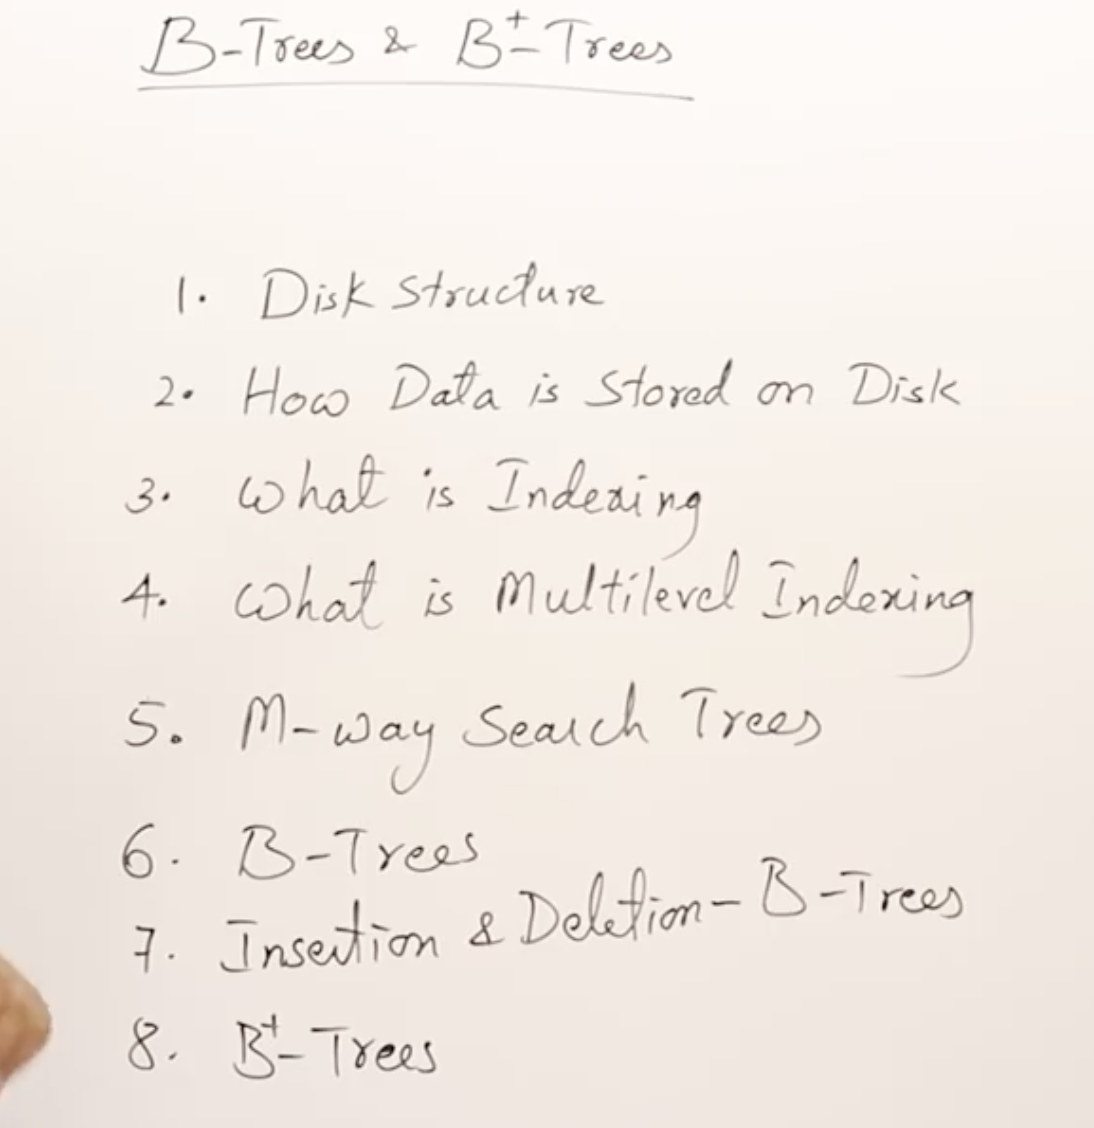 B-Trees & B+-Trees
1. Disk Structure
2. How Data is Stored on Disk
3. What is Indexing
4. What is Multilevel Indexing
5. M-way Search Trees
6. B-Trees
7. Insertion & Deletion - B-Trees
8. B+-Trees